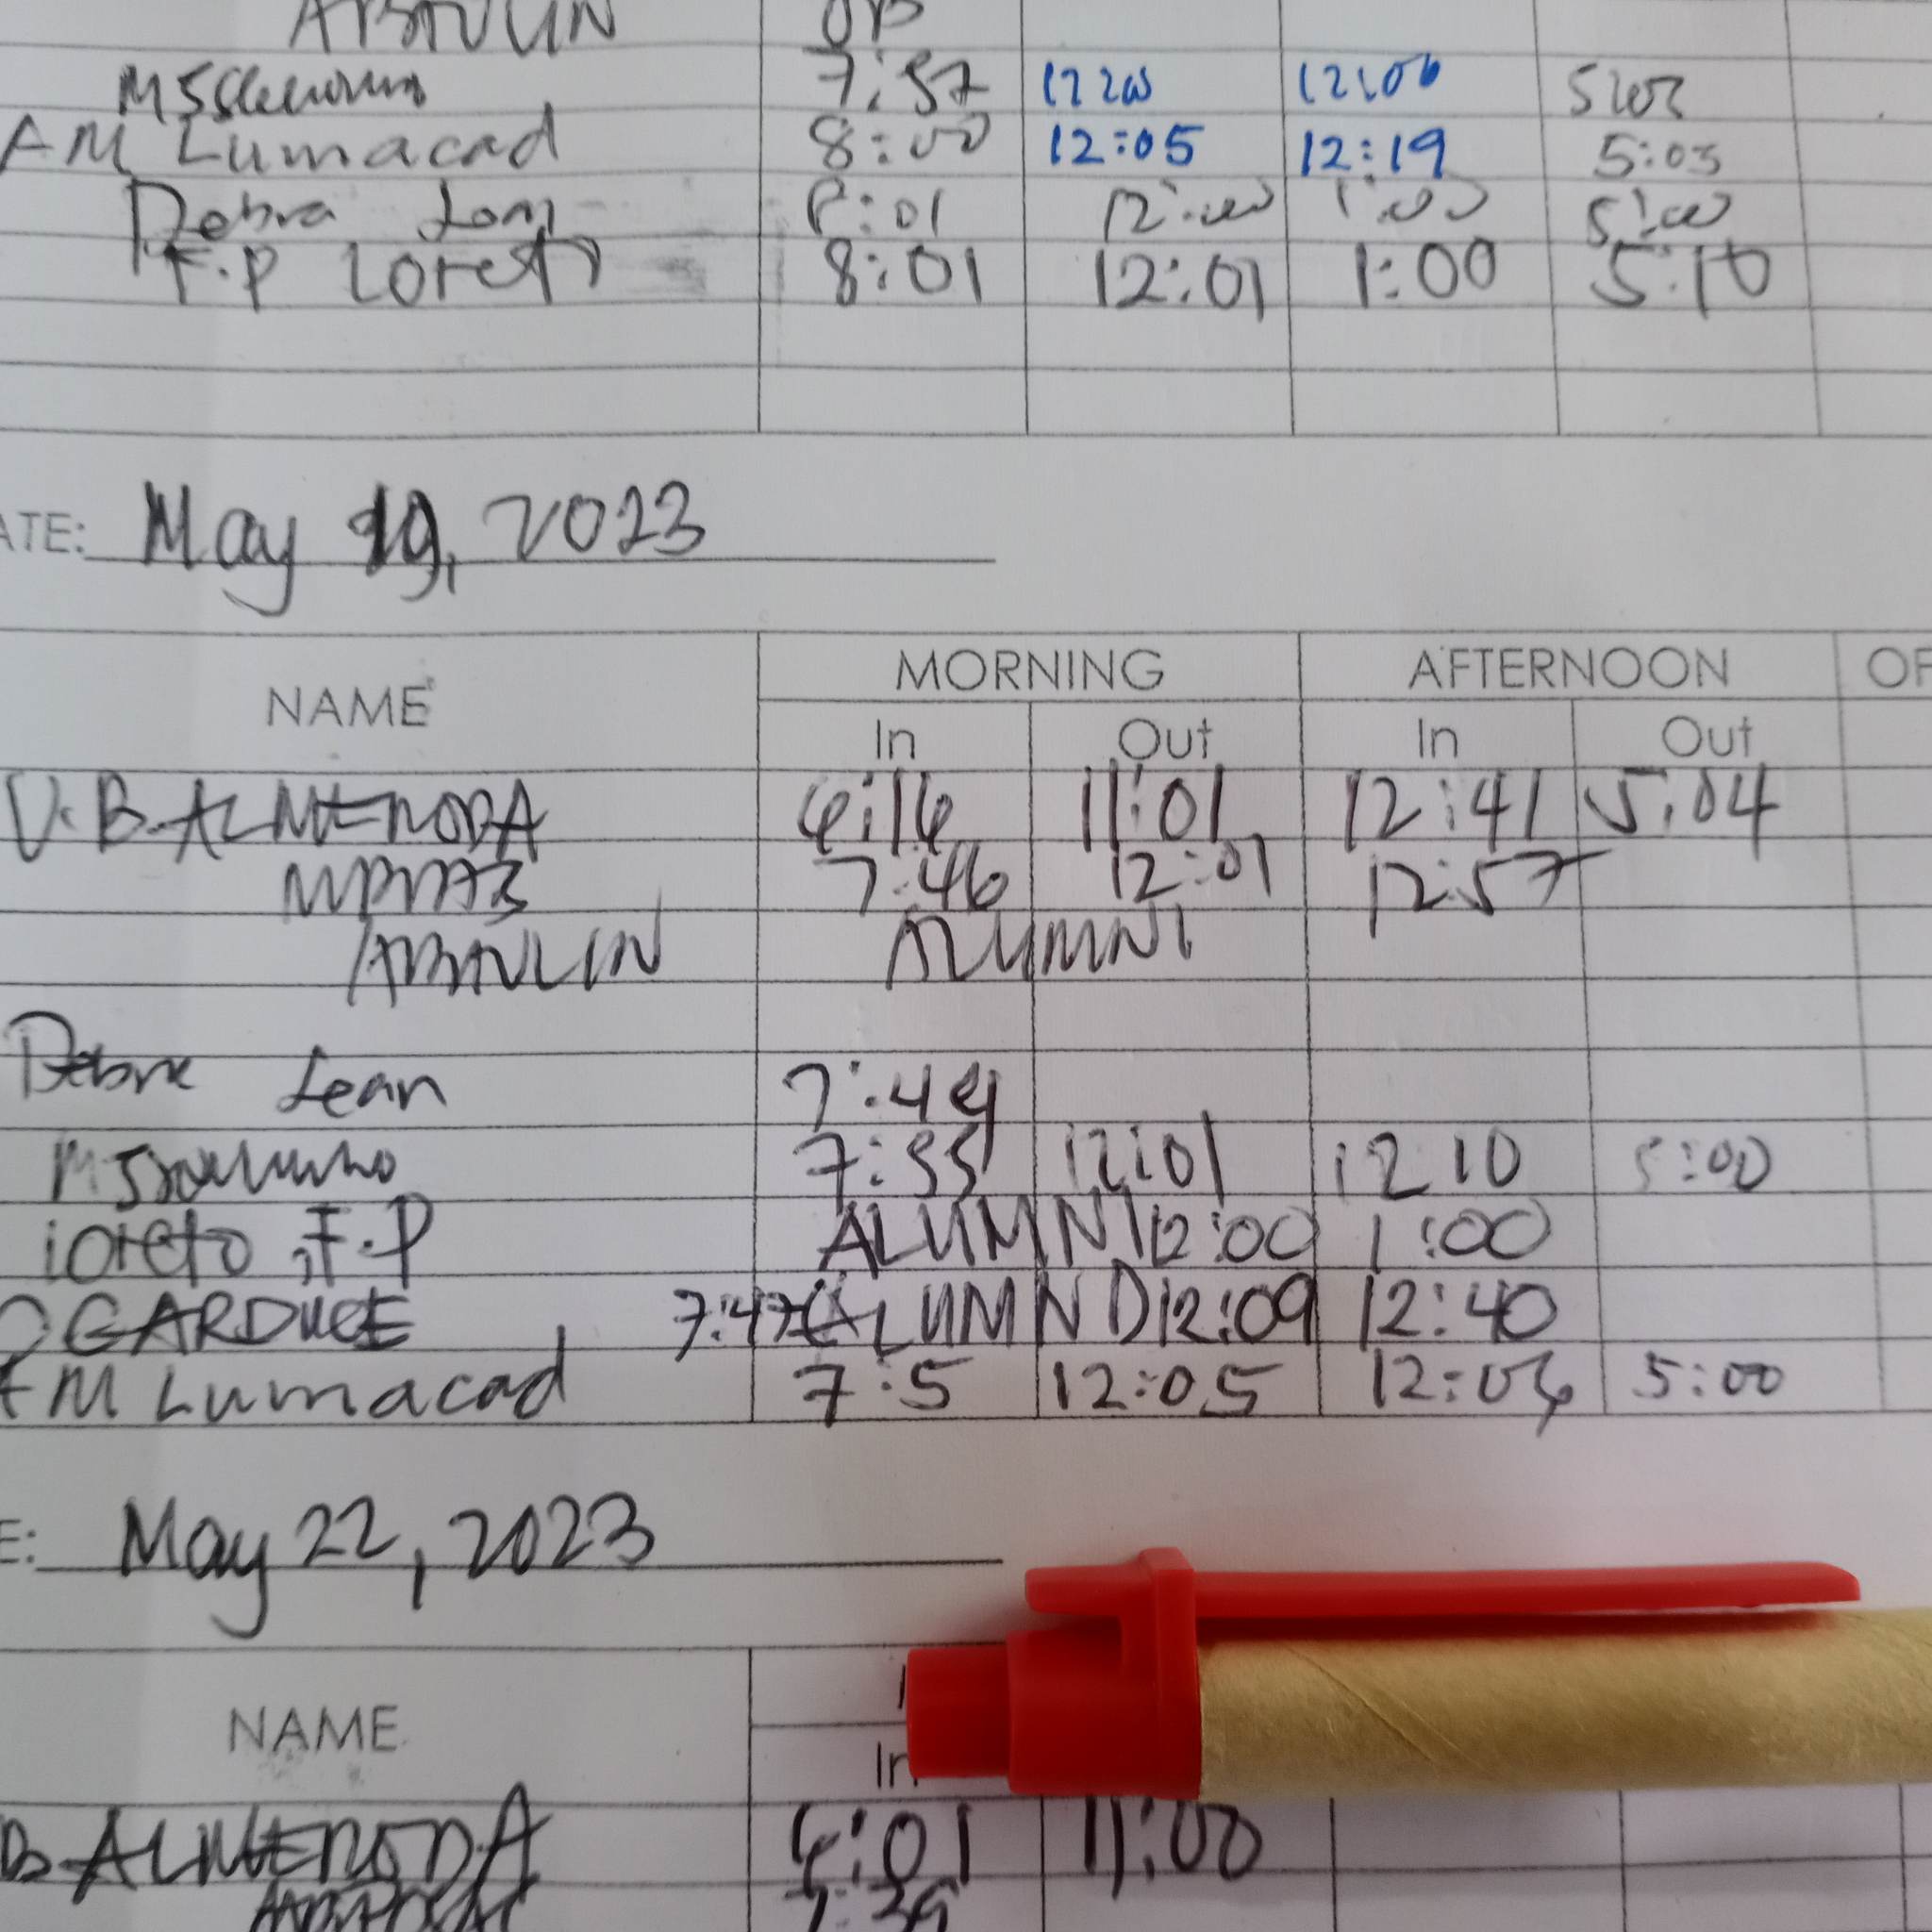 7:57 12:06
AM Lumacad 8:00 12:05 12:19 5:03
Debra 8:01 12:00 1:00 5:00
F.P Loreto 8:01 12:01 1:00 5:10
ATE: May 19, 2023
NAME MORNING AFTERNOON OF
In Out In Out
V.B. ALMENODA 6:16 11:01 12:41 5:04
7:46 12:01 12:57
ALUMNI
Debra Lean 7:44
7:55 12:01 12 10 5:00
Loreto, F.P ALUMNI 12:00 1:00
GARDUCE 7:47 (ALUMNI) 12:09 12:40
AM Lumacad 7:5 12:05 12:06 5:00
E: May 22, 2023
NAME
In
B. ALMENODA 6:01 11:00
7:39